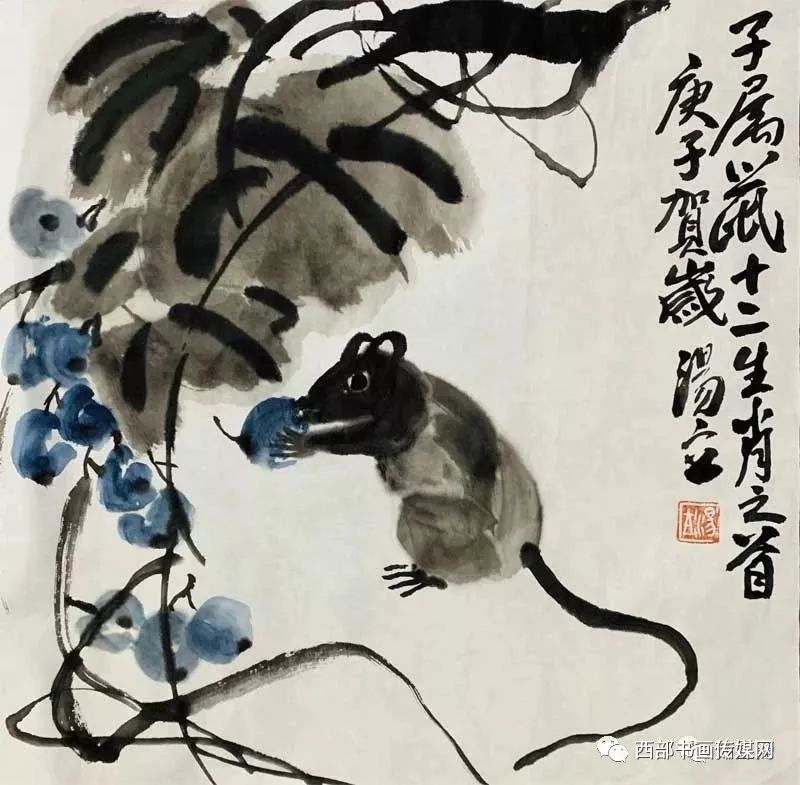 子属鼠十二生肖之首
庚子賀歲 湯立
西部书画传媒网